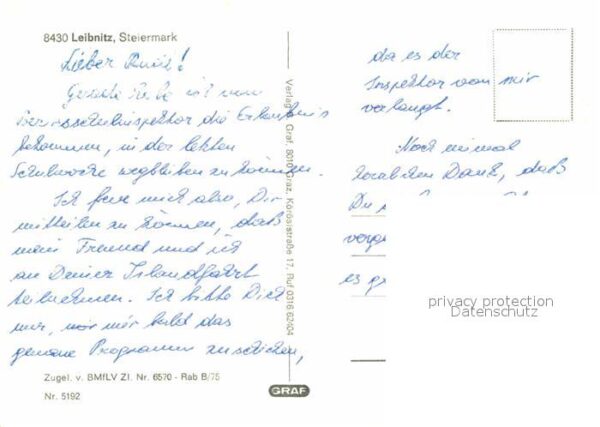 8430 Leibnitz, Steiermark
Lieber
Gerade habe ich vom
Bezirksschulinspektor die Erlaubnis
bekommen, in der letzten
Schulwoche wegbleiben zu können.
Ich freue mich also, Dir
mitteilen zu können, daß
mein Freund und ich
an Deiner Islandfahrt
teilnehmen. Ich bitte Dich
nur, mir bald das
genaue Programm zu schicken,
Zugel. v. BMfLV Zl. Nr. 6570 - Rab B/75
Nr. 5192
Verlag Graf, 8010 Graz, Körösistraße 17, Ruf 0316 62404
GRAF
da es der
Inspektor von mir
verlangt.
Noch einmal
herzlichen Dank, daß
Du
es
privacy protection
Datenschutz